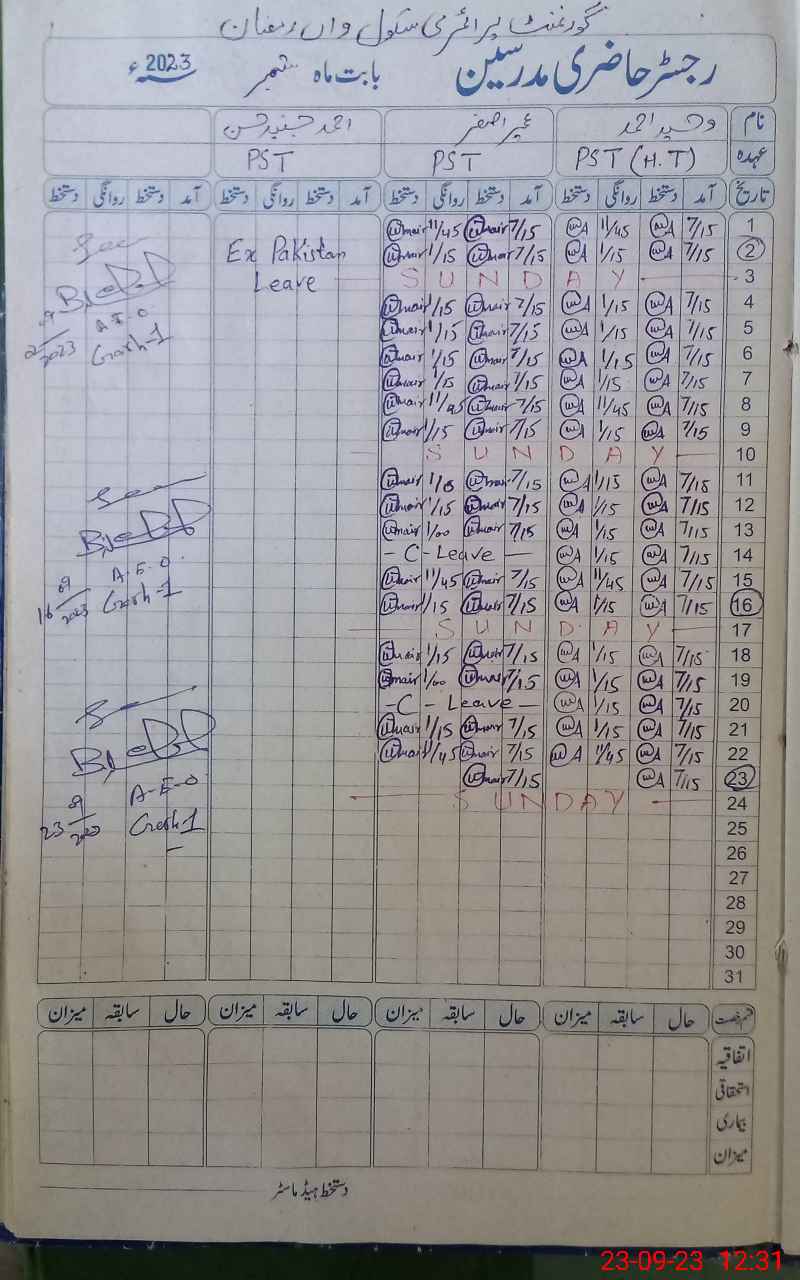 گورنمنٹ پرائمری سکول واں رمضان
رجسٹر حاضری مدرسین بابت ماہ ستمبر 2023ء
نام وحید احمد عمیر اصغر احمد جنید حسن
عہدہ PST (H.T) PST PST
تاریخ آمد دستخط روانگی دستخط آمد دستخط روانگی دستخط آمد دستخط روانگی دستخط آمد دستخط روانگی دستخط
1 7/15 WA 11/45 WA 7/15 Umair 11/45 Umair
2 7/15 WA 1/15 WA 7/15 Umair 1/15 Umair Ex Pakistan
3 SUNDAY Leave
4 7/15 WA 1/15 WA 7/15 Umair 1/15 Umair
5 7/15 WA 1/15 WA 7/15 Umair 1/15 Umair
6 7/15 WA 1/15 WA 7/15 Umair 1/15 Umair
7 7/15 WA 1/15 WA 7/15 Umair 1/15 Umair
8 7/15 WA 11/45 WA 7/15 Umair 11/45 Umair
9 7/15 WA 1/15 WA 7/15 Umair 1/15 Umair
10 SUNDAY
11 7/15 WA 1/15 WA 7/15 Umair 1/15 Umair
12 7/15 WA 1/15 WA 7/15 Umair 1/15 Umair
13 7/15 WA 1/15 WA 7/15 Umair 1/00 Umair
14 7/15 WA 1/15 WA - C - Leave -
15 7/15 WA 11/45 WA 7/15 Umair 11/45 Umair
16 7/15 WA 1/15 WA 7/15 Umair 1/15 Umair
17 SUNDAY
18 7/15 WA 1/15 WA 7/15 Umair 1/15 Umair
19 7/15 WA 1/15 WA 7/15 Umair 1/00 Umair
20 7/15 WA 1/15 WA - C - Leave -
21 7/15 WA 1/15 WA 7/15 Umair 1/15 Umair
22 7/15 WA 11/45 WA 7/15 Umair 11/45 Umair
23 7/15 WA 7/15 Umair
24 SUNDAY
25
26
27
28
29
30
31
See
A.E.O
2/09/2023
See
A.E.O
16/09/2023
See
A-E-O
23
قسم رخصت حال سابقہ میزان حال سابقہ میزان حال سابقہ میزان حال سابقہ میزان
اتفاقیہ
استحقاقی
بیماری
میزان
دستخط ہیڈ ماسٹر
23-09-23 12:31